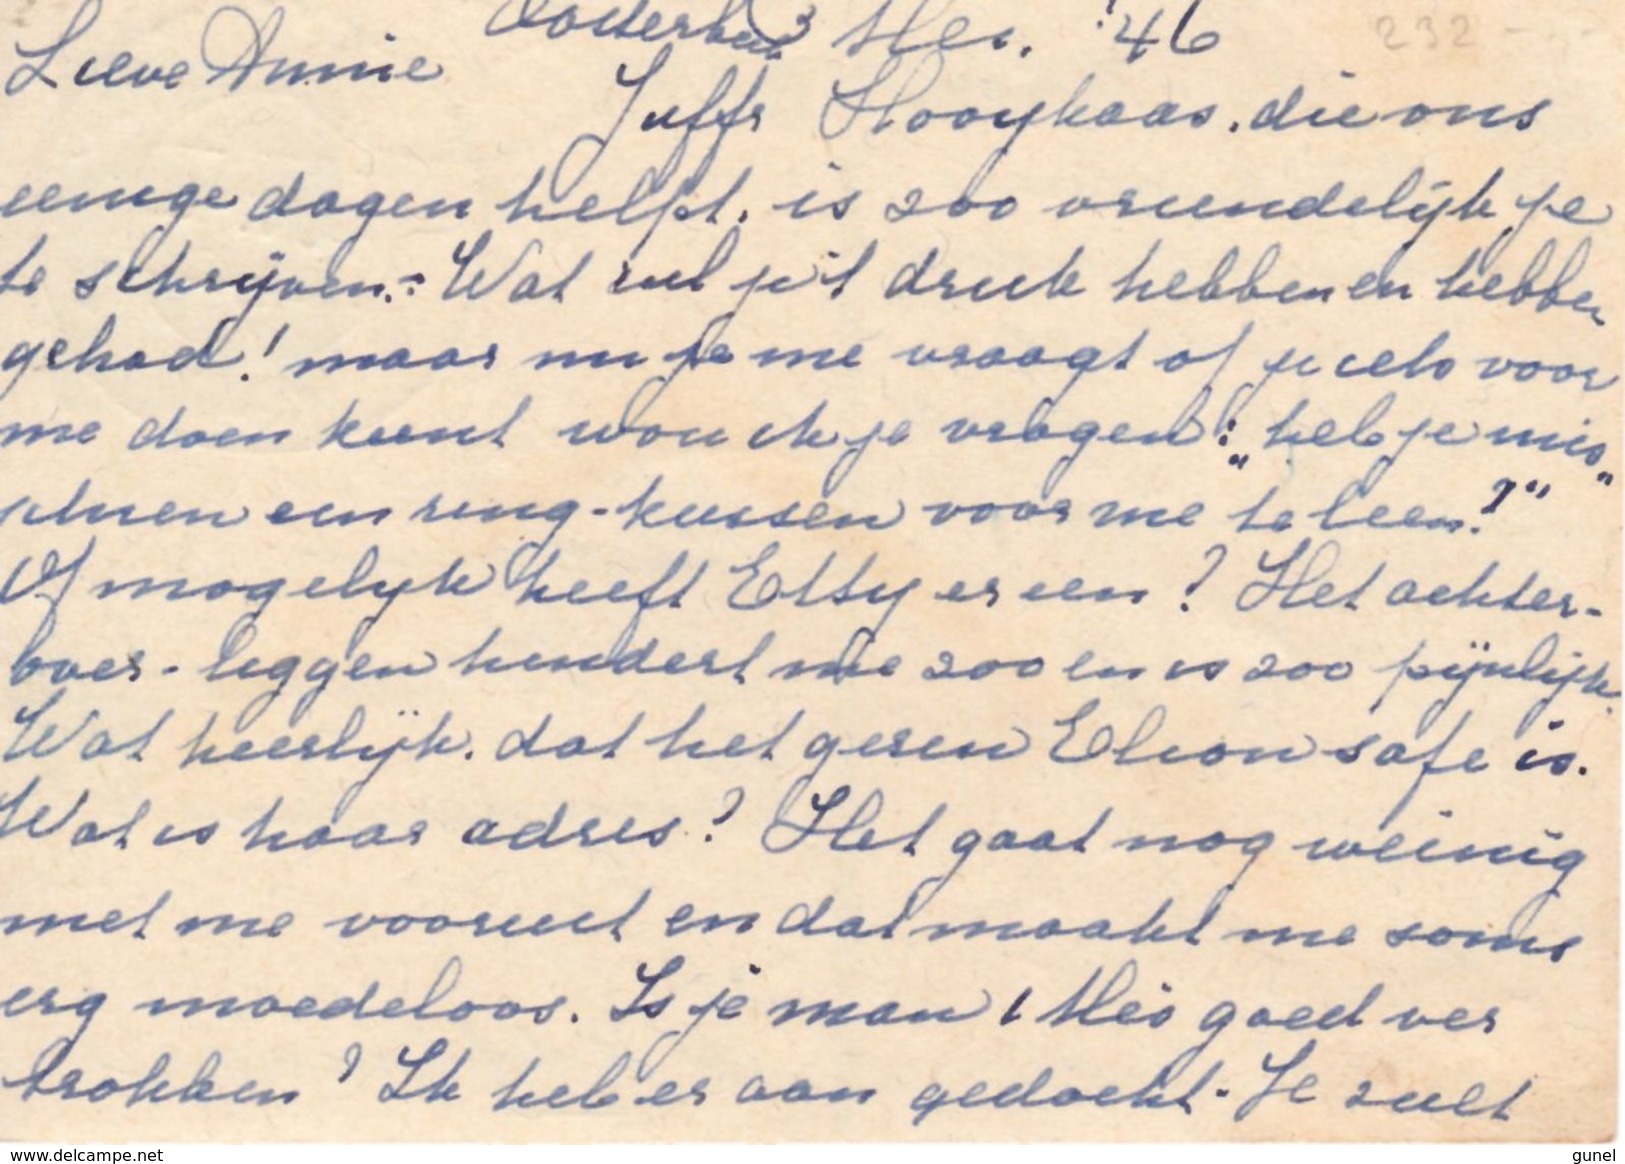 Oosterbeek 3 Mei. '46
232 -
Lieve Annie
Juffr Hooykaas, die ons
eenige dagen helpt, is zoo vriendelijk je
te schrijven.: Wat zul je 't druk hebben en hebben
gehad! maar nu je me vraagt of je iets voor
me doen kunt wou ik je vragen: "heb je mis
schien een ring-kussen voor me te leen?"
Of mogelijk heeft Etty er een? Het achter-
over-liggen hindert me zoo en is zoo pijnlijk.
Wat heerlijk, dat het gezin Elion safe is.
Wat is haar adres? Het gaat nog weinig
met me vooruit en dat maakt me soms
erg moedeloos. Is je man 1 Mei goed ver
trokken? Ik heb er aan gedacht. Je zult
delcampe.net
gunel